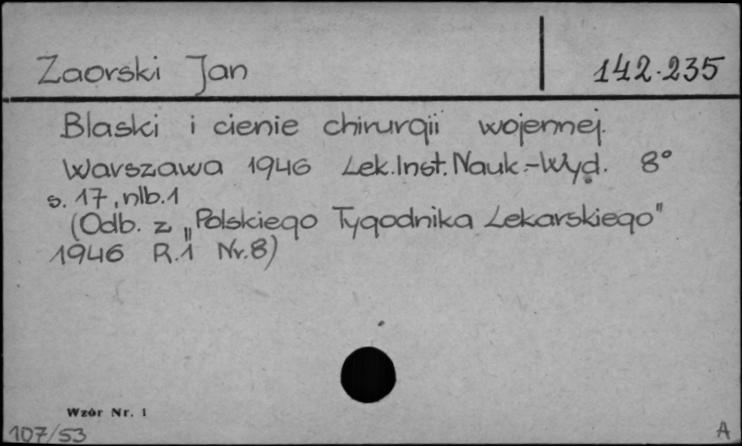 Zaorski Jan 142.235
Blaski i cienie chirurgii wojennej.
Warszawa 1946 Lek.Inst.Nauk.-Wyd. 8°
s. 17, nlb.1
(Odb. z „Polskiego Tygodnika Lekarskiego"
1946 R.1 Nr.8)
Wzór Nr. 1
107/53 A